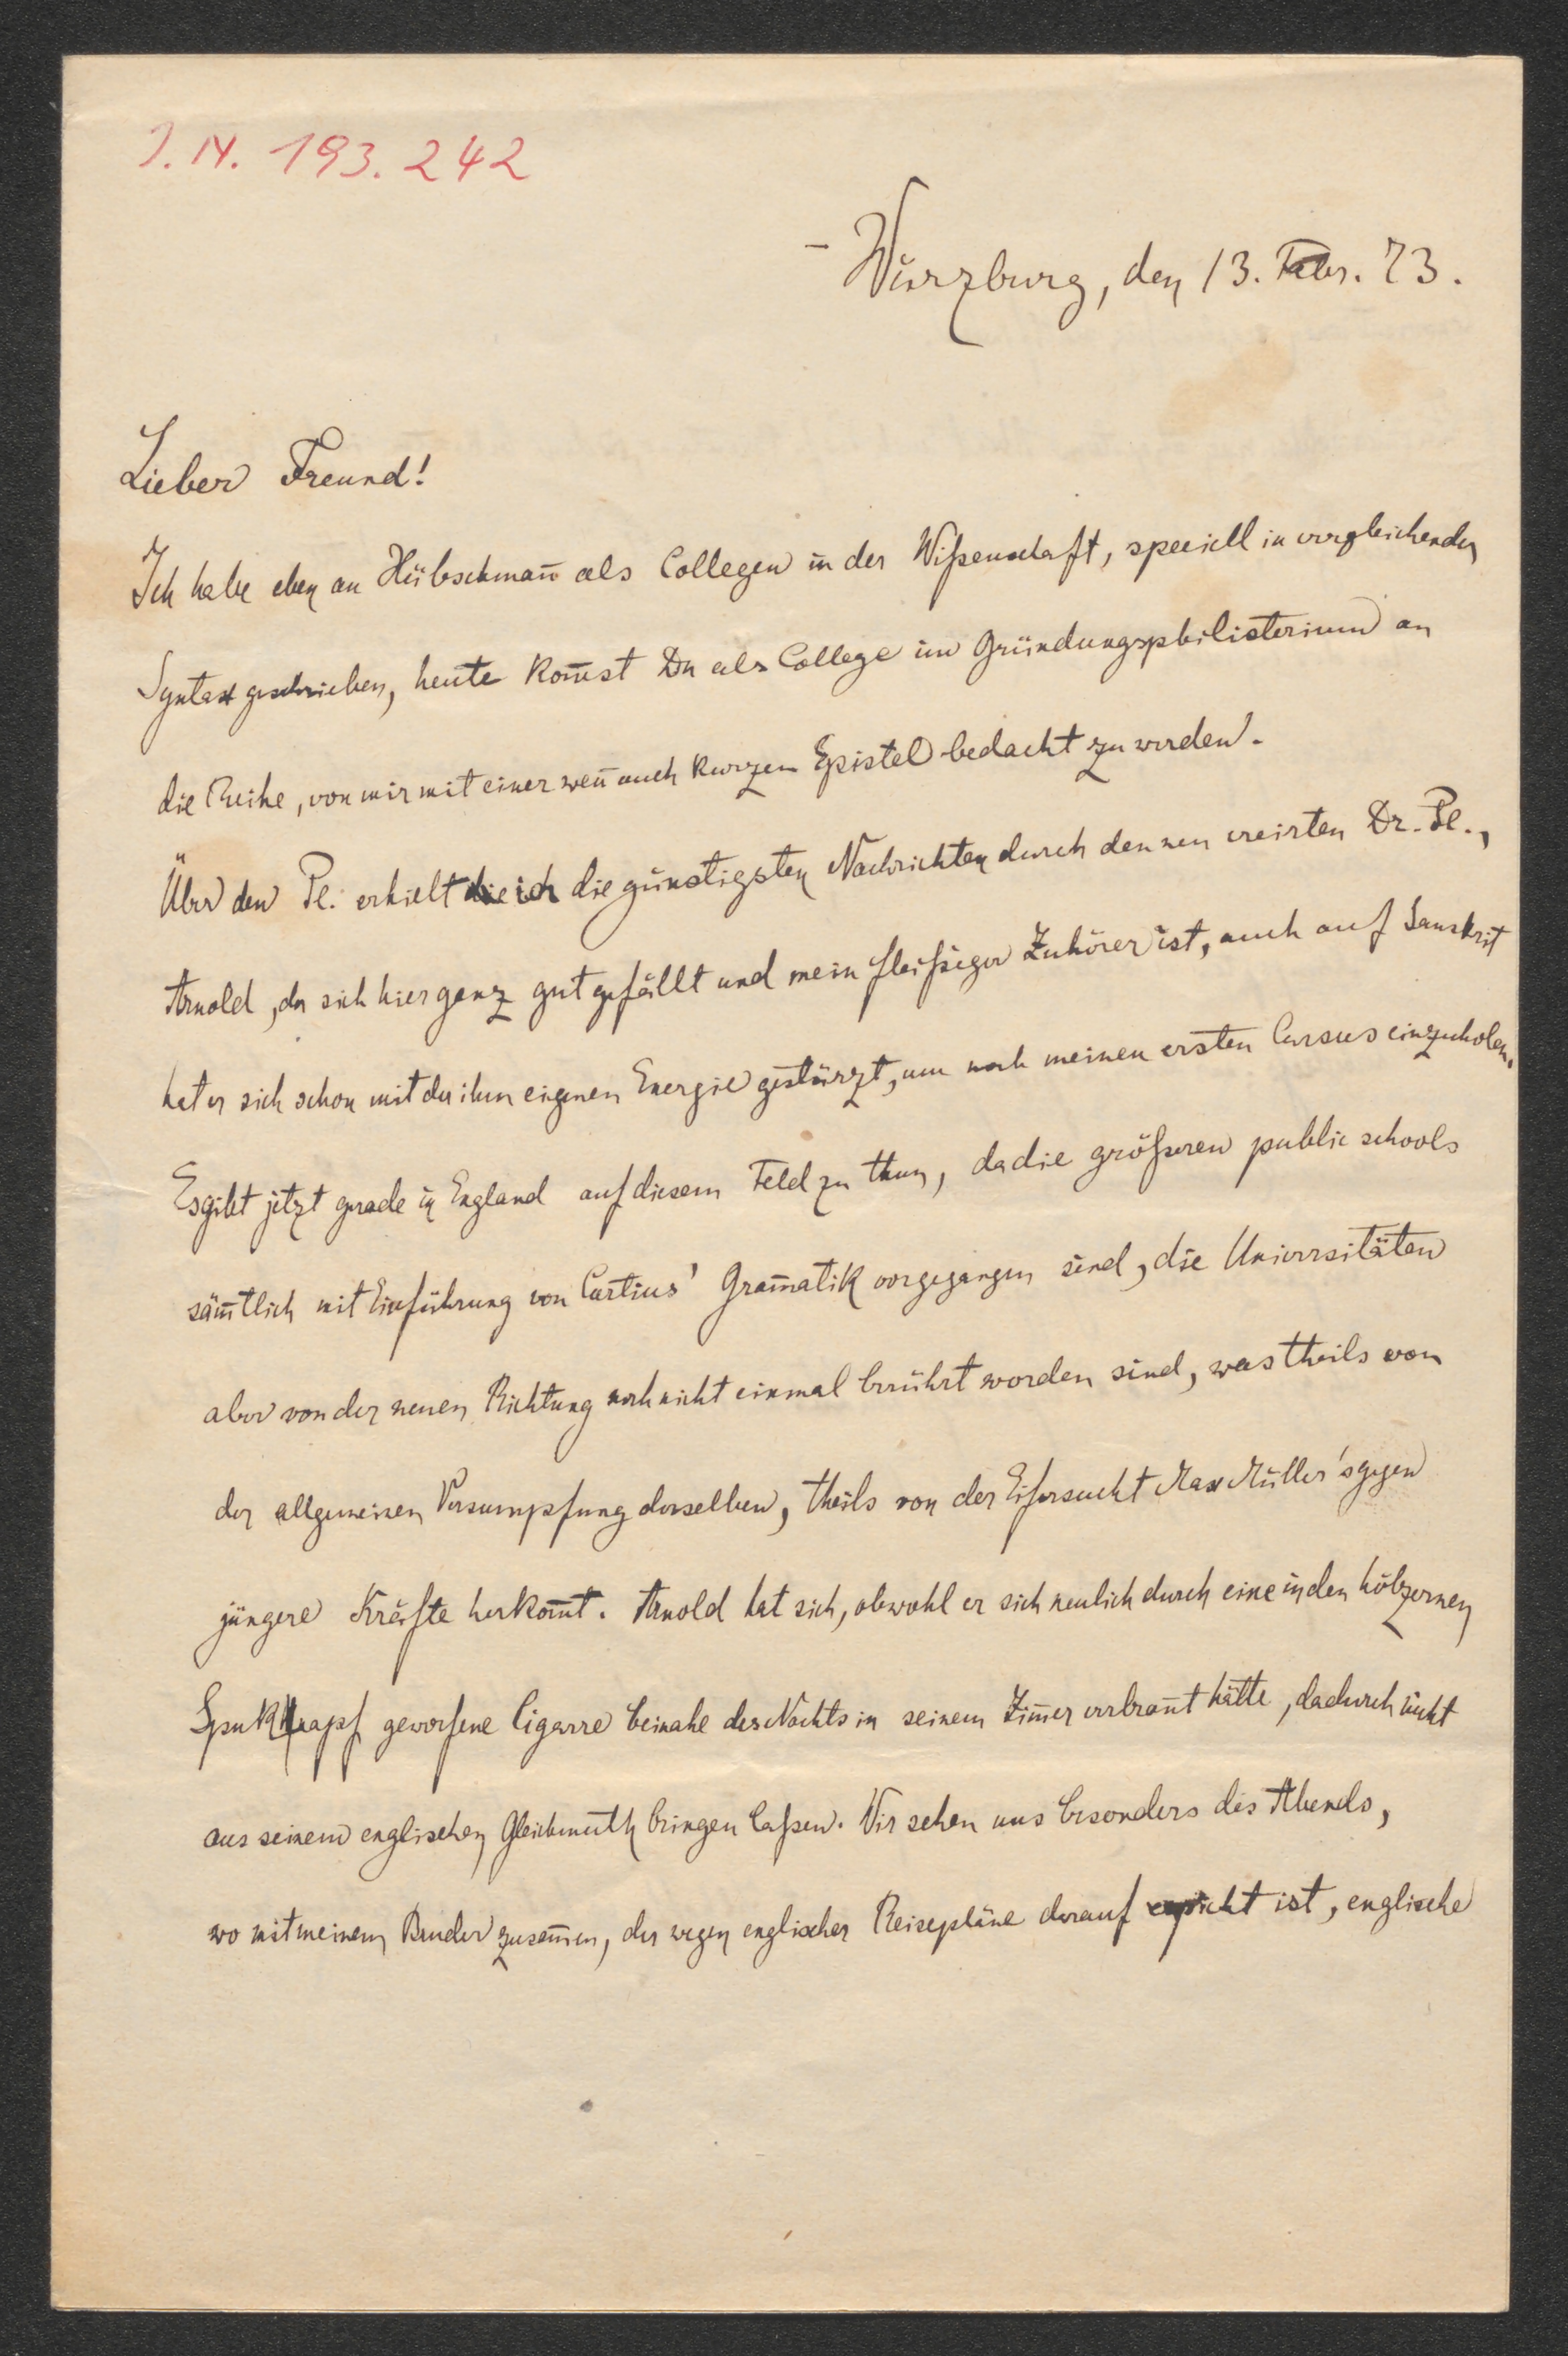 J. N. 193.242
Würzburg, den 13. Febr. 73.
Lieber Freund!
Ich habe eben an Hübschmañ als Collegen in der Wißenschaft, speciell in vergleichender
Syntax geschrieben, heute kom̄st Du als College im Gründungsphilisterium an
die Reihe, von mir mit einer weñ auch kurzen Epistel bedacht zu werden.
Über den Pl. erhielt ich die günstigsten Nachrichten durch den neu creirten Dr. Pl.,
Arnold, der sich hier ganz gut gefällt und mein fleißiger Zuhörer ist, auch auf Sanskrit
hat er sich schon mit der ihm eigenen Energie gestürzt, um noch meinen ersten Cursus einzuholen.
Es gibt jetzt gerade in England auf diesem Feld zu thun, da die größeren public schools
säm̄tlich mit Einführung von Curtius' Gram̄atik vorgegangen sind, die Universitäten
aber von der neuen Richtung noch nicht einmal berührt worden sind, was theils von
der allgemeinen Versumpfung derselben, theils von der Eifersucht Max Müller's gegen
jüngere Kräfte herkom̄t. Arnold hat sich, obwohl er sich neulich durch eine in den hölzernen
Spuknapf geworfene Cigarre beinahe des Nachts in seinem Zim̄er verbrañt hätte, dadurch nicht
aus seinem englischen Gleichmuth bringen laßen. Wir sehen uns besonders des Abends,
wo mit meinem Bruder zusam̄en, der wegen englischer Reisepläne darauf erpicht ist, englische